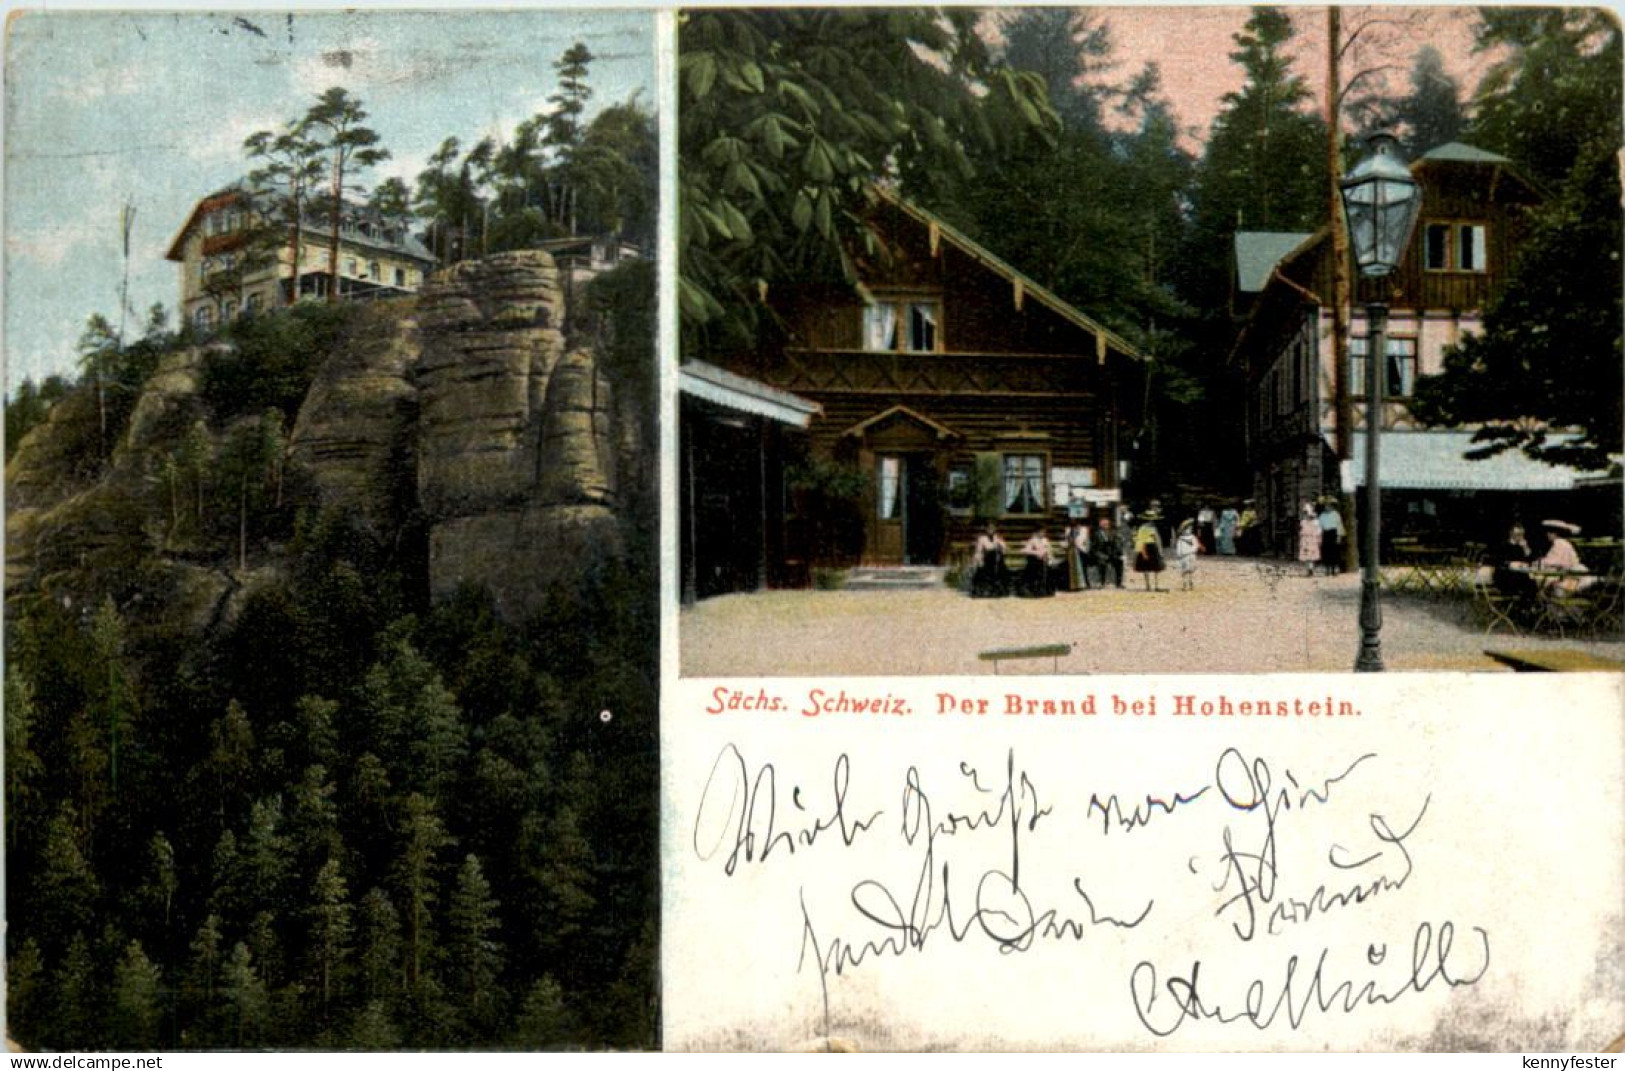 Sächs. Schweiz. Der Brand bei Hohenstein.
Viele Grüße von Hier
sendet Dein Freund
delcampe.net
kennyfester